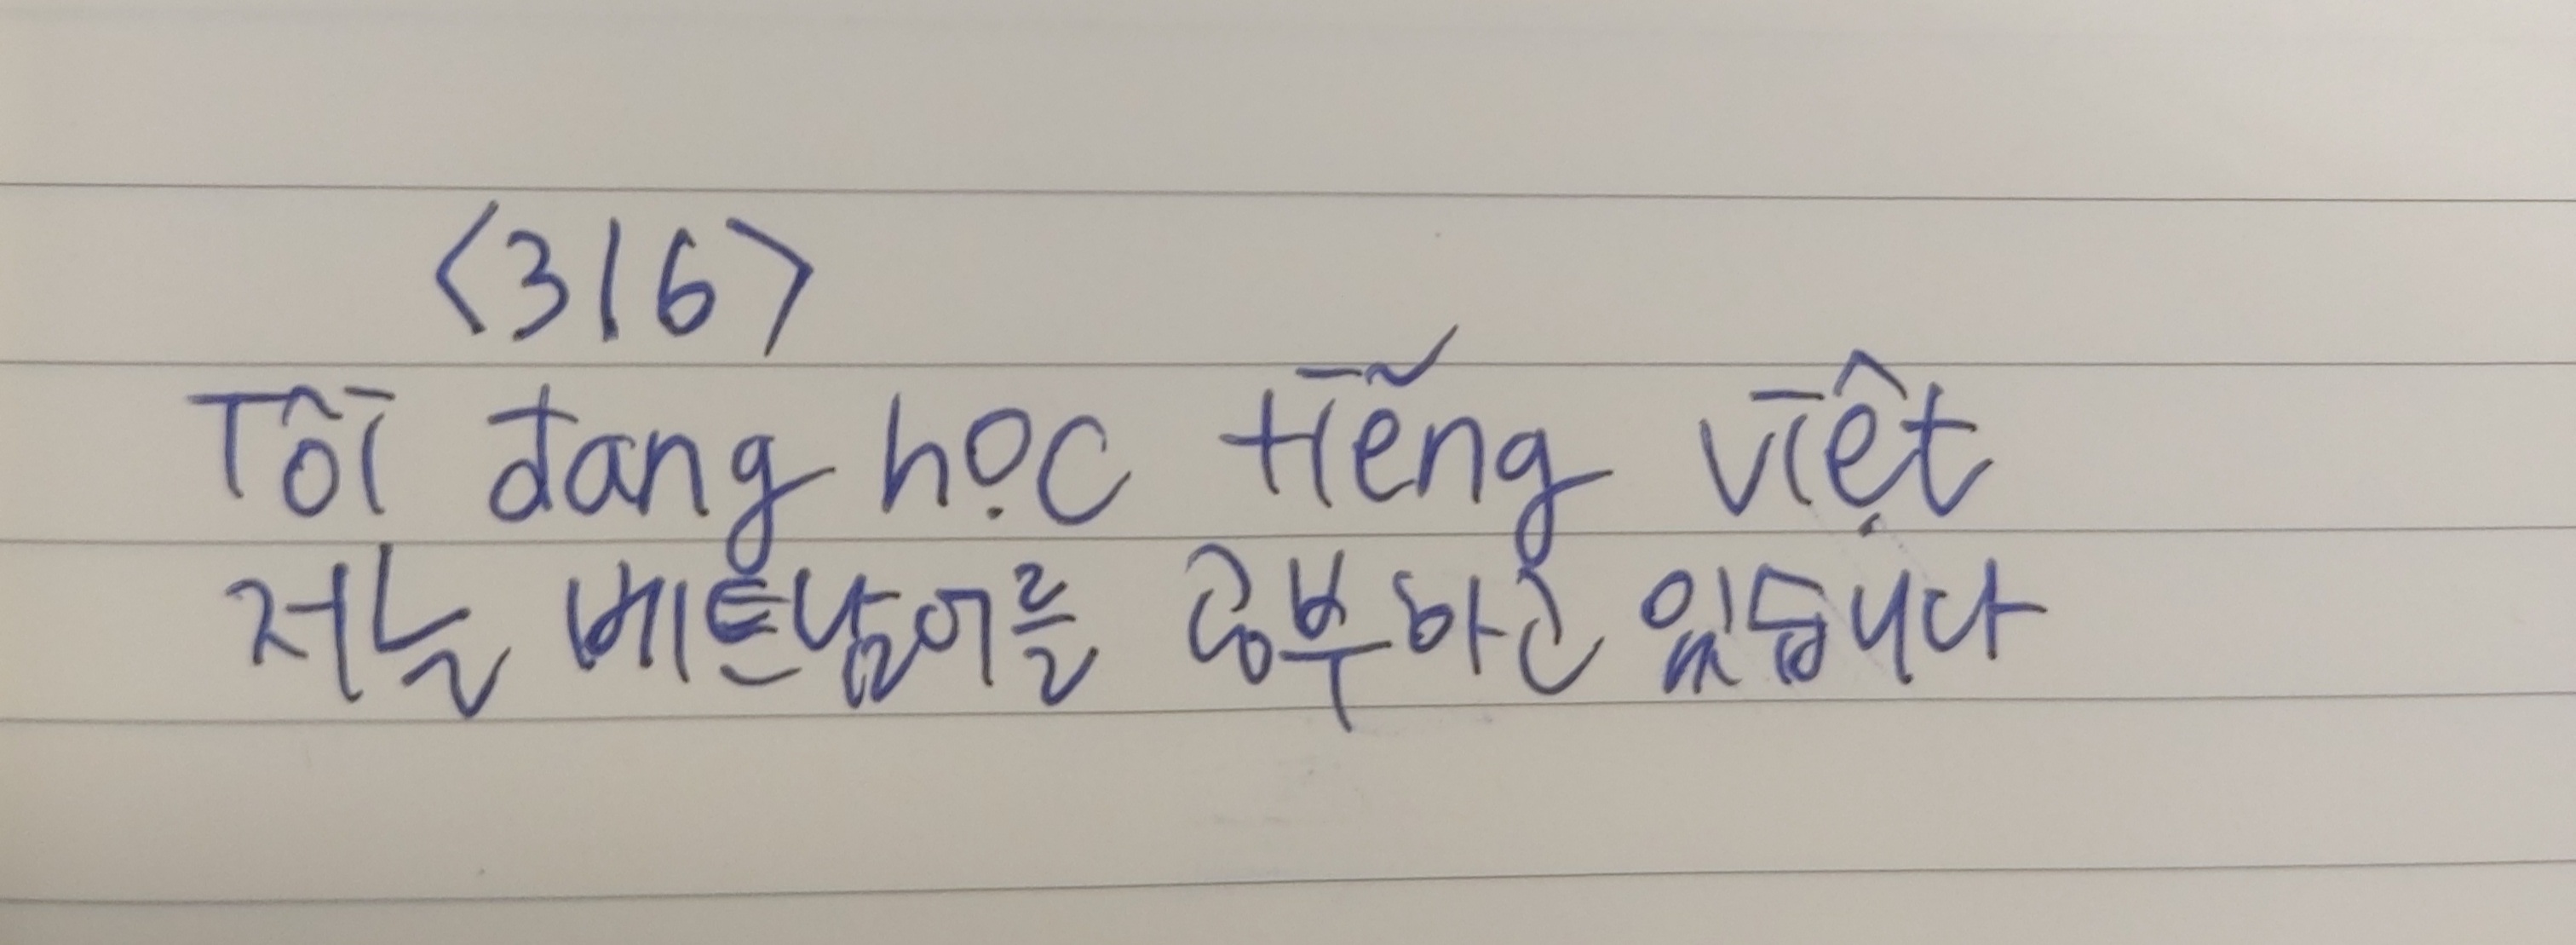 <316>
Tôi đang học tiếng việt
저는 베트남어를 공부하고 있습니다